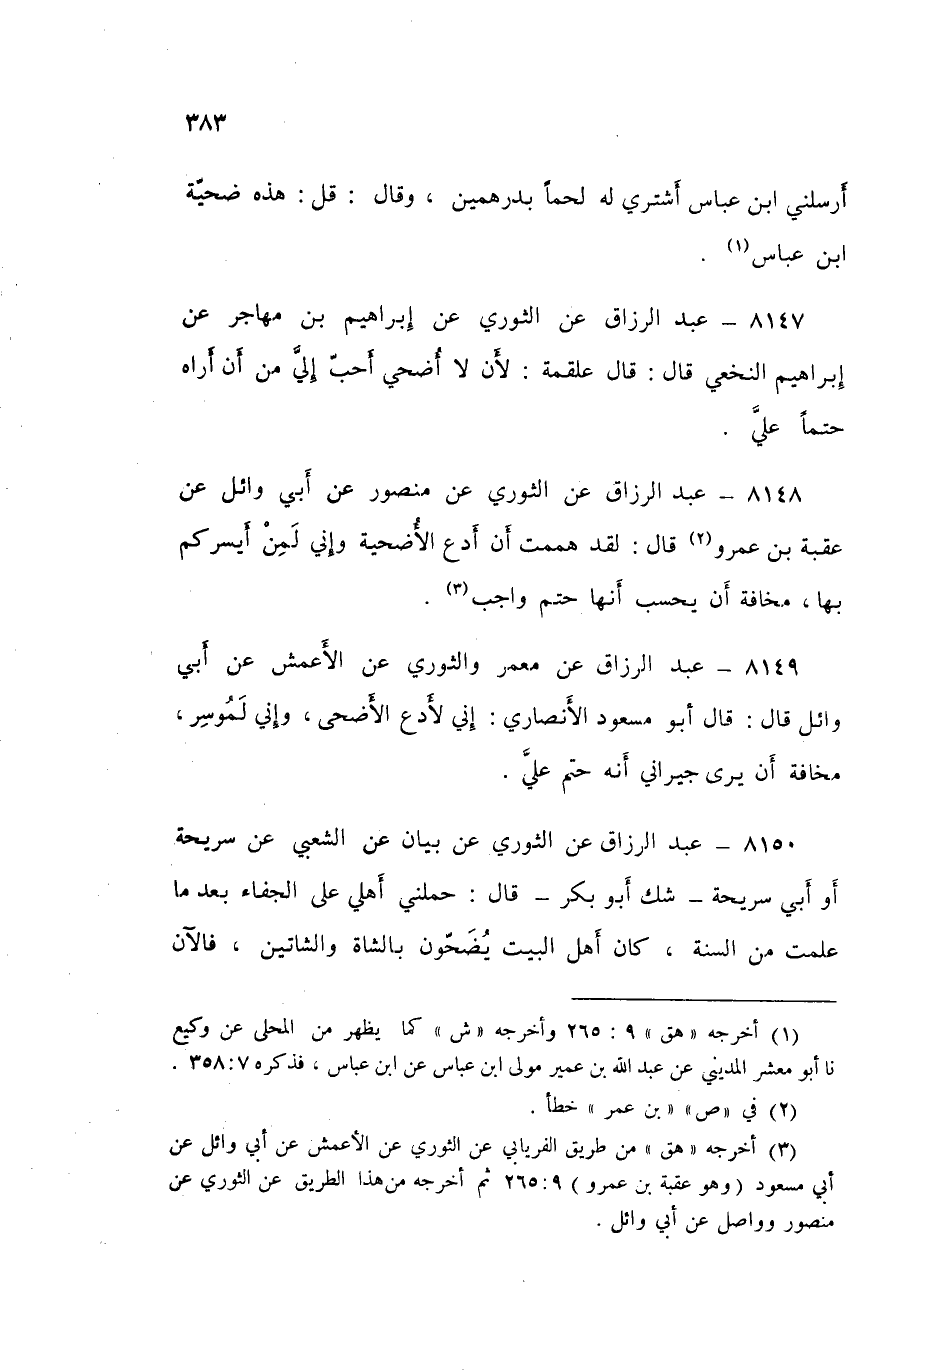 ٣٨٣
أرسلني ابن عباس أشتري له لحماً بدرهمين ، وقال : قل : هذه ضحيّة
ابن عباس(١) .
٨١٤٧ – عبد الرزاق عن الثوري عن إبراهيم بن مهاجر عن
إبراهيم النخعي قال : قال علقمة : لأن لا أُضحي أحبّ إليَّ من أن أراه
حتماً عليَّ .
٨١٤٨ – عبد الرزاق عن الثوري عن منصور عن أبي وائل عن
عقبة بن عمرو(٢) قال : لقد هممت أن أدع الأُضحية وإني لَمِنْ أيسركم
بها ، مخافة أن يحسب أنها حتم واجب(٣) .
٨١٤٩ – عبد الرزاق عن معمر والثوري عن الأعمش عن أبي
وائل قال : قال أبو مسعود الأنصاري : إني لأدع الأضحى ، وإني لَمُوسِر ،
مخافة أن يرى جيراني أنه حتم عليَّ .
٨١٥٠ – عبد الرزاق عن الثوري عن بيان عن الشعبي عن سريحة
أو أبي سريحة – شك أبو بكر – قال : حملني أهلي على الجفاء بعد ما
علمت من السنة ، كان أهل البيت يُضَحّون بالشاة والشاتين ، فالآن
(١) أخرجه «هق» ٩ : ٢٦٥ وأخرجه «ش» كما يظهر من المحلى عن وكيع
نا أبو معشر المديني عن عبد الله بن عمير مولى ابن عباس عن ابن عباس ، فذكره ٧:٣٥٨ .
(٢) في «ص» «بن عمر» خطأ .
(٣) أخرجه «هق» من طريق الفريابي عن الثوري عن الأعمش عن أبي وائل عن
أبي مسعود (وهو عقبة بن عمرو) ٩:٢٦٥ ثم أخرجه من هذا الطريق عن الثوري عن
منصور وواصل عن أبي وائل .